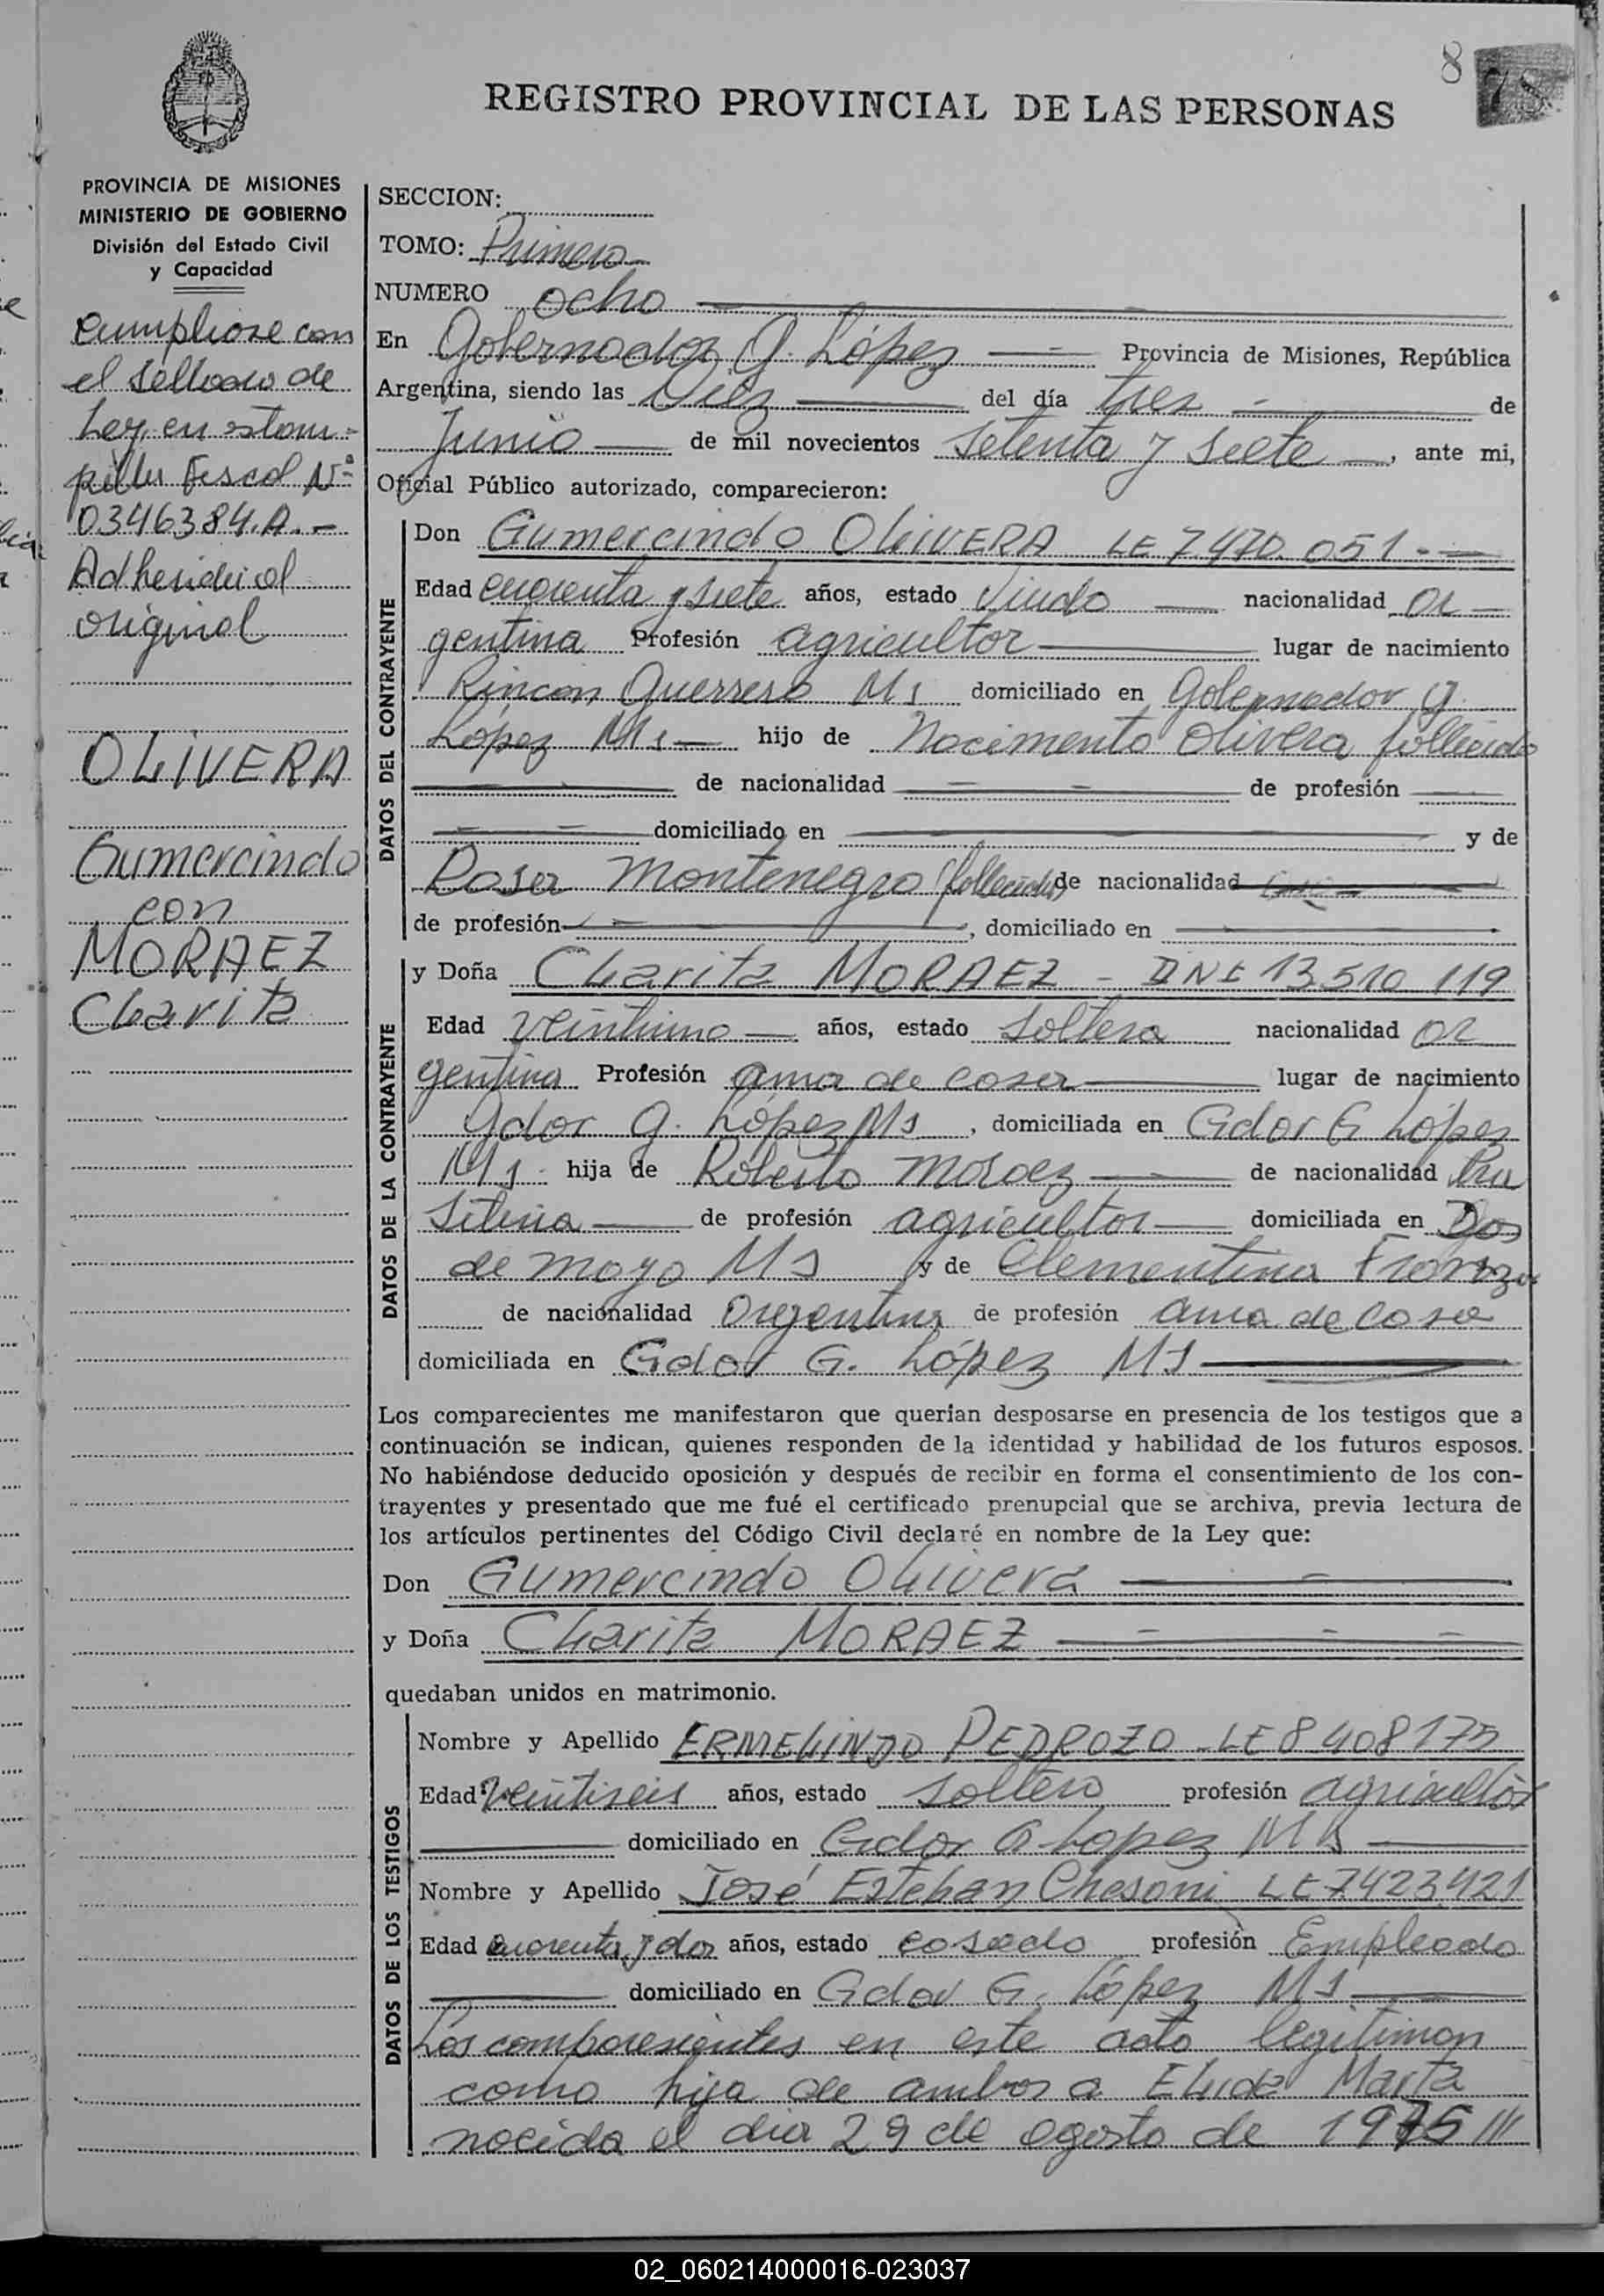 8
REGISTRO PROVINCIAL DE LAS PERSONAS
PROVINCIA DE MISIONES
MINISTERIO DE GOBIERNO
División del Estado Civil
y Capacidad
Cumpliose con
el sellado de
Ley, en estam-
pilla Fiscal Nº
0346384.A.-
Adherida al
original
OLIVERA
Gumercindo
con
MORAEZ
Clarita
SECCION:
TOMO: Primero
NUMERO ocho
En Gobernador G. López Provincia de Misiones, República
Argentina, siendo las Diez del día tres de
Junio de mil novecientos setenta y siete, ante mi,
Oficial Público autorizado, comparecieron:
DATOS DEL CONTRAYENTE
Don Gumercindo OLIVERA LE 7470.051.-
Edad cuarenta y siete años, estado Viudo nacionalidad ar
gentina Profesión agricultor lugar de nacimiento
Rincon Guerrero Ms domiciliado en Gobernador G.
López Ms hijo de Nacimento Olivera fallecido
de nacionalidad de profesión
domiciliado en y de
Rosa Montenegro (fallecida) de nacionalidad
de profesión , domiciliado en
DATOS DE LA CONTRAYENTE
y Doña Clarita MORAEZ - DNI 13.510.119
Edad veintiuno años, estado soltera nacionalidad ar
gentina Profesión ama de casa lugar de nacimiento
Gdor G. López Ms , domiciliada en Gdor G López
Ms hija de Roberto Moraez de nacionalidad Bra
silera de profesión agricultor domiciliada en Dos
de mayo Ms y de Clementina Franza
de nacionalidad argentina de profesión ama de casa
domiciliada en Gdor G. López Ms
Los comparecientes me manifestaron que querían desposarse en presencia de los testigos que a
continuación se indican, quienes responden de la identidad y habilidad de los futuros esposos.
No habiéndose deducido oposición y después de recibir en forma el consentimiento de los con-
trayentes y presentado que me fué el certificado prenupcial que se archiva, previa lectura de
los artículos pertinentes del Código Civil declaré en nombre de la Ley que:
Don Gumercindo Olivera
y Doña Clarita MORAEZ
quedaban unidos en matrimonio.
DATOS DE LOS TESTIGOS
Nombre y Apellido ERMELINDO PEDROZO - LE 8408175
Edad veintiseis años, estado soltero profesión agricultor
domiciliado en Gdor G. Lopez Ms
Nombre y Apellido José Esteban Chesani LE 7423421
Edad cuarenta y dos años, estado casado profesión Empleado
domiciliado en Gdor G. López Ms
Los comparesientes en este acto legitiman
como hija de ambos a Elida Marta
nacida el dia 29 de agosto de 1975
02_060214000016-023037